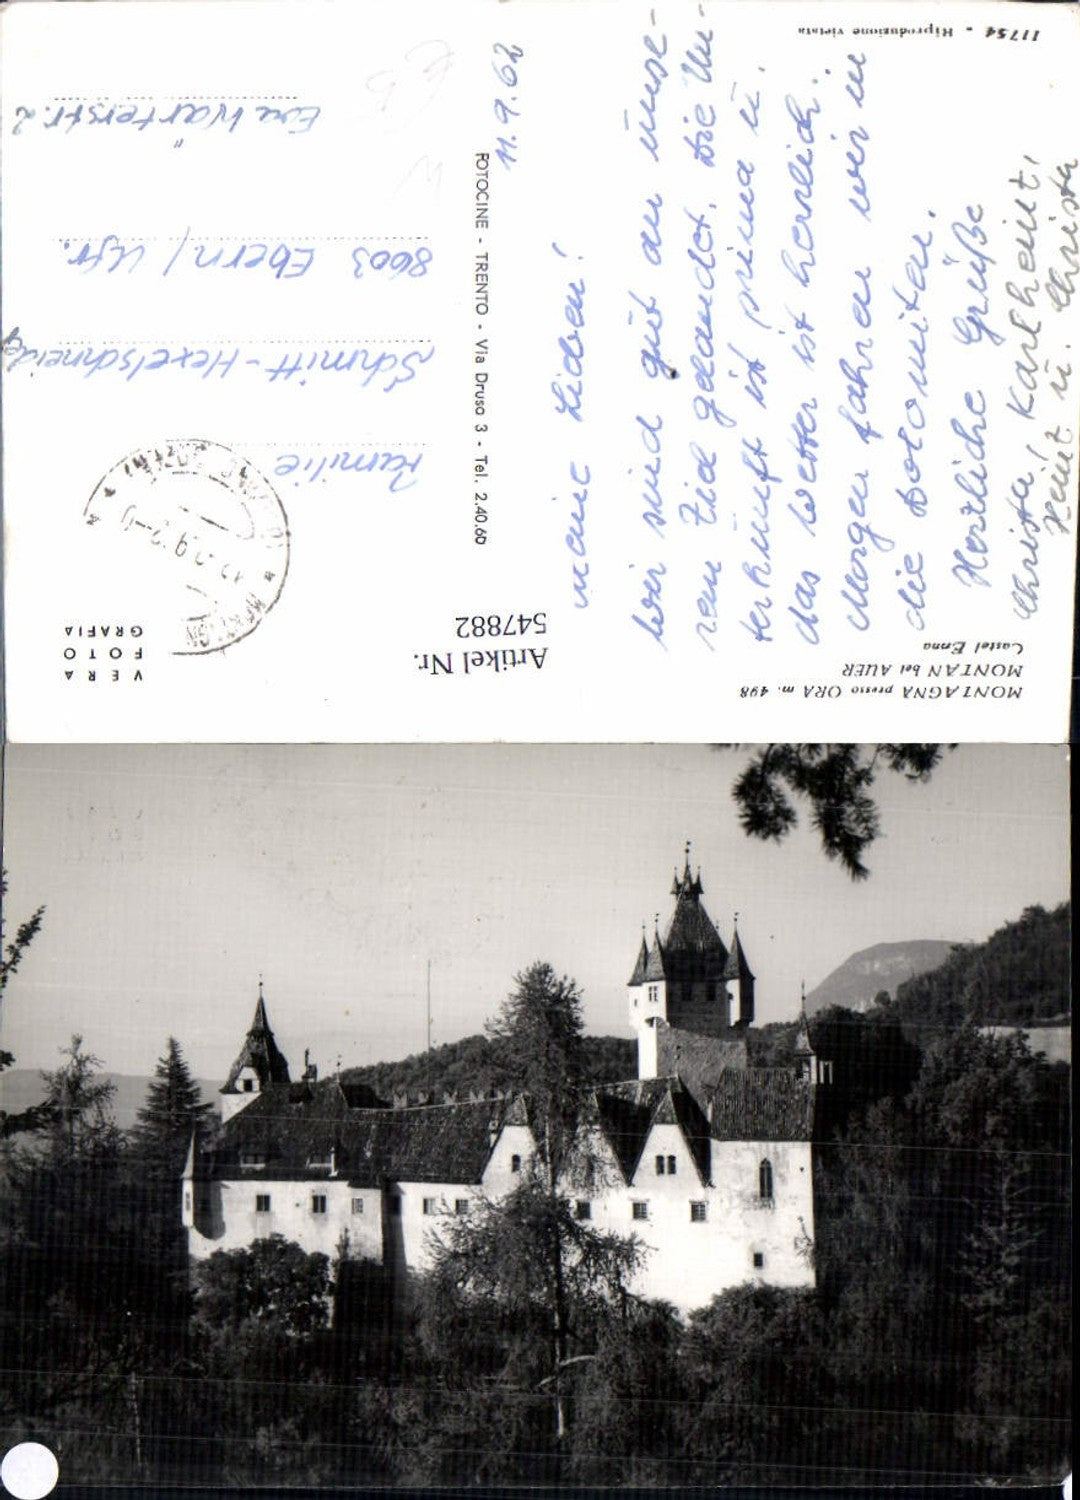 MONTAGNA presso ORA m. 498
MONTAN bei AUER
Castel Enna
11754 - Riproduzione vietata
FOTOCINE - TRENTO - Via Druso 3 - Tel. 2.40.60
VERA
FOTO
GRAFIA
Artikel Nr.
547882
11.9.62
Meine Lieben!
Wir sind gut an unse-
rem Ziel gelandet. Die Un-
terkunft ist prima u.
das Wetter ist herrlich.
Morgen fahren wir in
die Dolomiten.
Herzliche Grüße
Christa, Karlheinz,
Heinz u. Christa
Familie
Schmitt-Hexelschneider
8603 Ebern/Ufr.
Wärterstr. 2